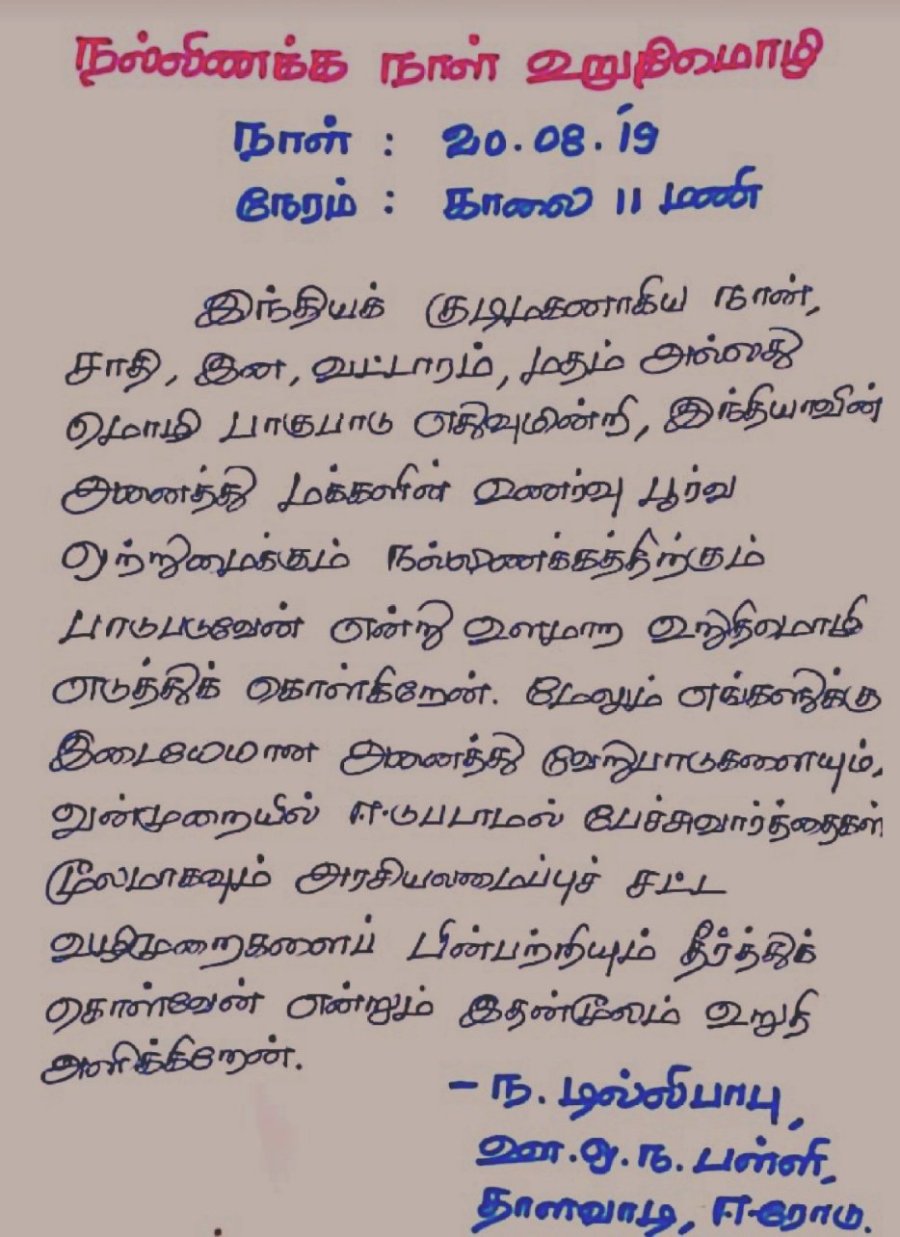 நல்லிணக்க நாள் உறுதிமொழி
நாள் : 20.08.'19
நேரம் : காலை 11 மணி
இந்தியக் குடிமகனாகிய நான்,
சாதி, இன, வட்டாரம், மதம் அல்லது
மொழி பாகுபாடு எதுவுமின்றி, இந்தியாவின்
அனைத்து மக்களின் உணர்வு பூர்வ
ஒற்றுமைக்கும் நல்லிணக்கத்திற்கும்
பாடுபடுவேன் என்று உளமாற உறுதிமொழி
எடுத்துக் கொள்கிறேன். மேலும் எங்களுக்கு
இடையேமான அனைத்து வேறுபாடுகளையும்,
வன்முறையில் ஈடுபடாமல் பேச்சுவார்த்தைகள்
மூலமாகவும் அரசியலமைப்புச் சட்ட
வழிமுறைகளைப் பின்பற்றியும் தீர்த்துக்
கொள்வேன் என்றும் இதன்மூலம் உறுதி
அளிக்கிறேன்.
- ந. டில்லிபாபு,
ஊ.ஒ.ந. பள்ளி,
தாளவாடி, ஈரோடு.